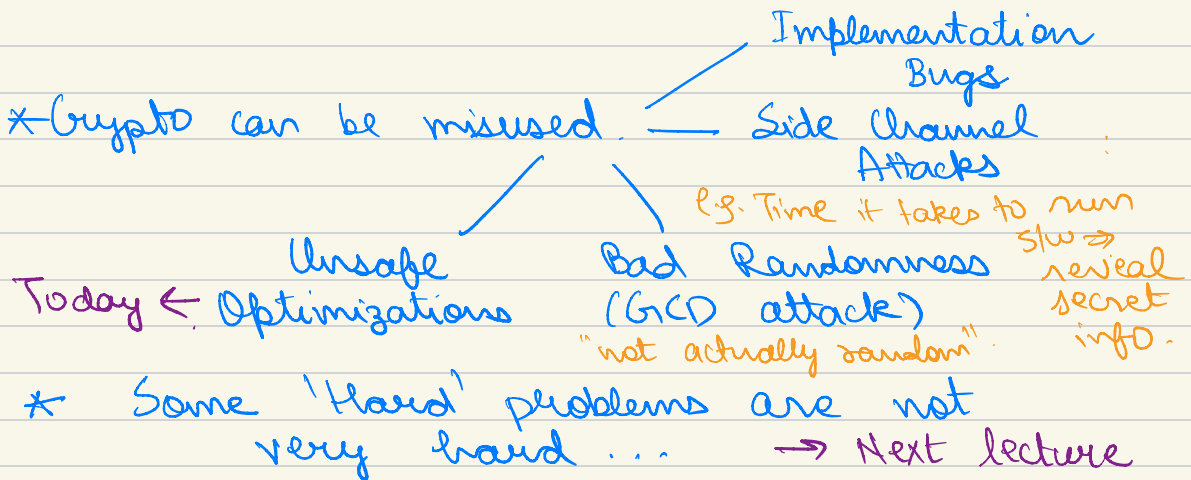 Implementation
Bugs
* Crypto can be misused. Side Channel
Attacks
e.g. Time it takes to run
s/w ⇒
reveal
secret
info.
Unsafe
Optimizations
Today ←
Bad Randomness
(GCD attack)
"not actually random"
* Some 'Hard' problems are not
very hard ... → Next lecture